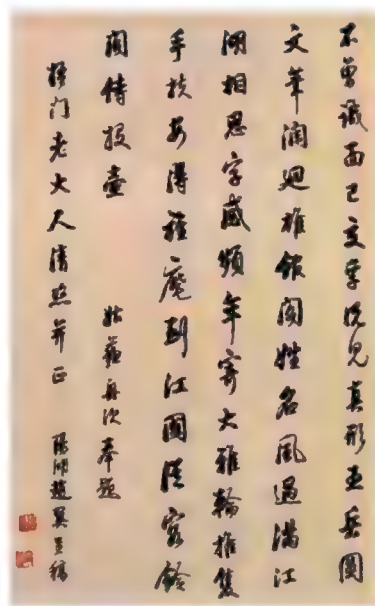 不曾識面已交孚況見真形五岳圖
文筆瀾迴推館閣姓名風過滿江
湖相思字感頻年寄大雅輪推隻
手扶安得旌麾到江國從容鈴
閣侍投壺 姑蘇舟次奉題
梧門老大人清照并正 陽湖趙翼呈稿